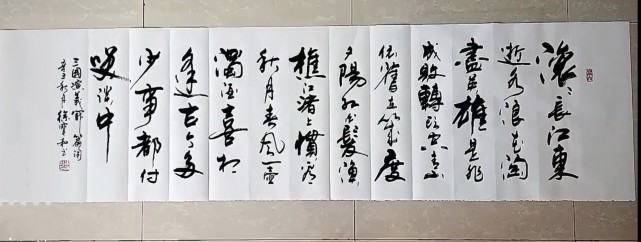 滚滚長江東
逝水浪花淘
盡英雄是非
成敗轉头空青山
依舊在幾度
夕陽红白髮漁
樵江渚上慣看
秋月春風一壶
濁酒喜相
逢古今多
少事都付
笑谈中
三國演義開篇词
辛丑秋月徐和书